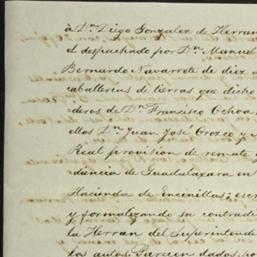 à Dⁿ. Diego Gonzalez de Herran
el despachado por Dⁿ. Manuel
Bernardo Navarrete de diez
caballerias de tierras que dicho
deros de Dⁿ. Francisco Ochoa,
ellos Dⁿ. Juan José Orozco y
Real provision de remate
diencia de Guadalaxara en
Hacienda de Encinillas; esc
y formalizando su contradi
la Herran del Superintende
los autos. Parecen dados, po